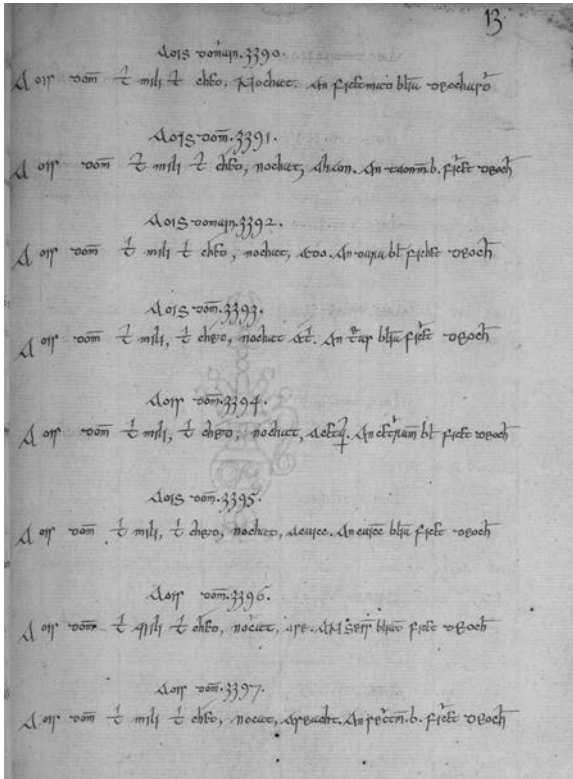 13
Aois domain. 3390.
Aois dom̄ tri mili tri chéd, Nochatt. An fichetmadh bliadh dEochaidh
Aois dom̄. 3391.
Aois dom̄ tri mili tri chéd, nochatt, ahaon. An taonm̄. b. fichet dEoch
Aois domain. 3392.
Aois dom̄ tri mili tri chéd, nochatt, ado. An dara bl fichet dEoch
Aois dom̄. 3393.
Aois dom̄ tri mili, tri chéd, nochatt atri. An treas bliadh fichet dEoch
Aois dom̄. 3394.
Aois dom̄ tri mili, tri chéd, nochatt, a An bl fichet dEoch
Aois dom̄. 3395.
Aois dom̄ tri mili, tri chéd, nochatt, acuicc. An cuicc bliadh fichet dEoch
Aois dom̄. 3396.
Aois dom̄ tri mili tri chéd, nochatt, ase. An seis bliadh fichet dEoch
Aois dom̄. 3397.
Aois dom̄ tri mili tri chéd, nocat, aseacht. An sectm̄. b. fichet dEoch